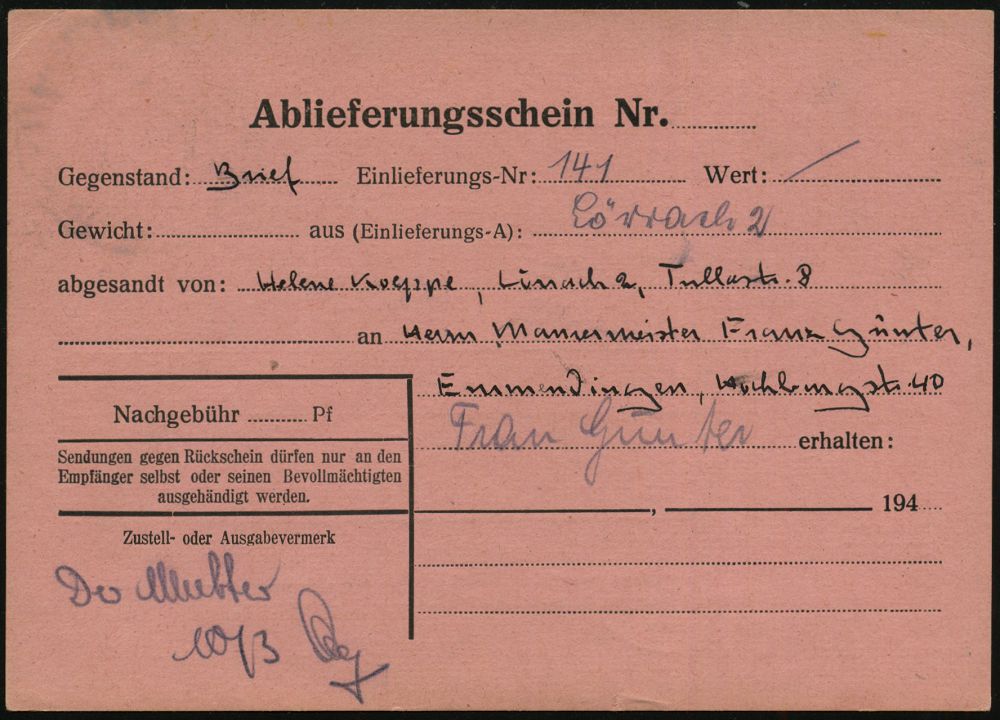 Ablieferungsschein Nr.
Gegenstand: Brief Einlieferungs-Nr: 141 Wert: /
Gewicht: aus (Einlieferungs-A): Lörrach 2
abgesandt von: Helene Koeppe, Lörrach 2, Tullastr. 8
an Herrn Maurermeister Franz Günter,
Emmendingen, Hochburgstr. 40
Nachgebühr Pf
Frau Günter erhalten:
Sendungen gegen Rückschein dürfen nur an den
Empfänger selbst oder seinen Bevollmächtigten
ausgehändigt werden.
, 194
Zustell- oder Ausgabevermerk
Der Mutter
10/3